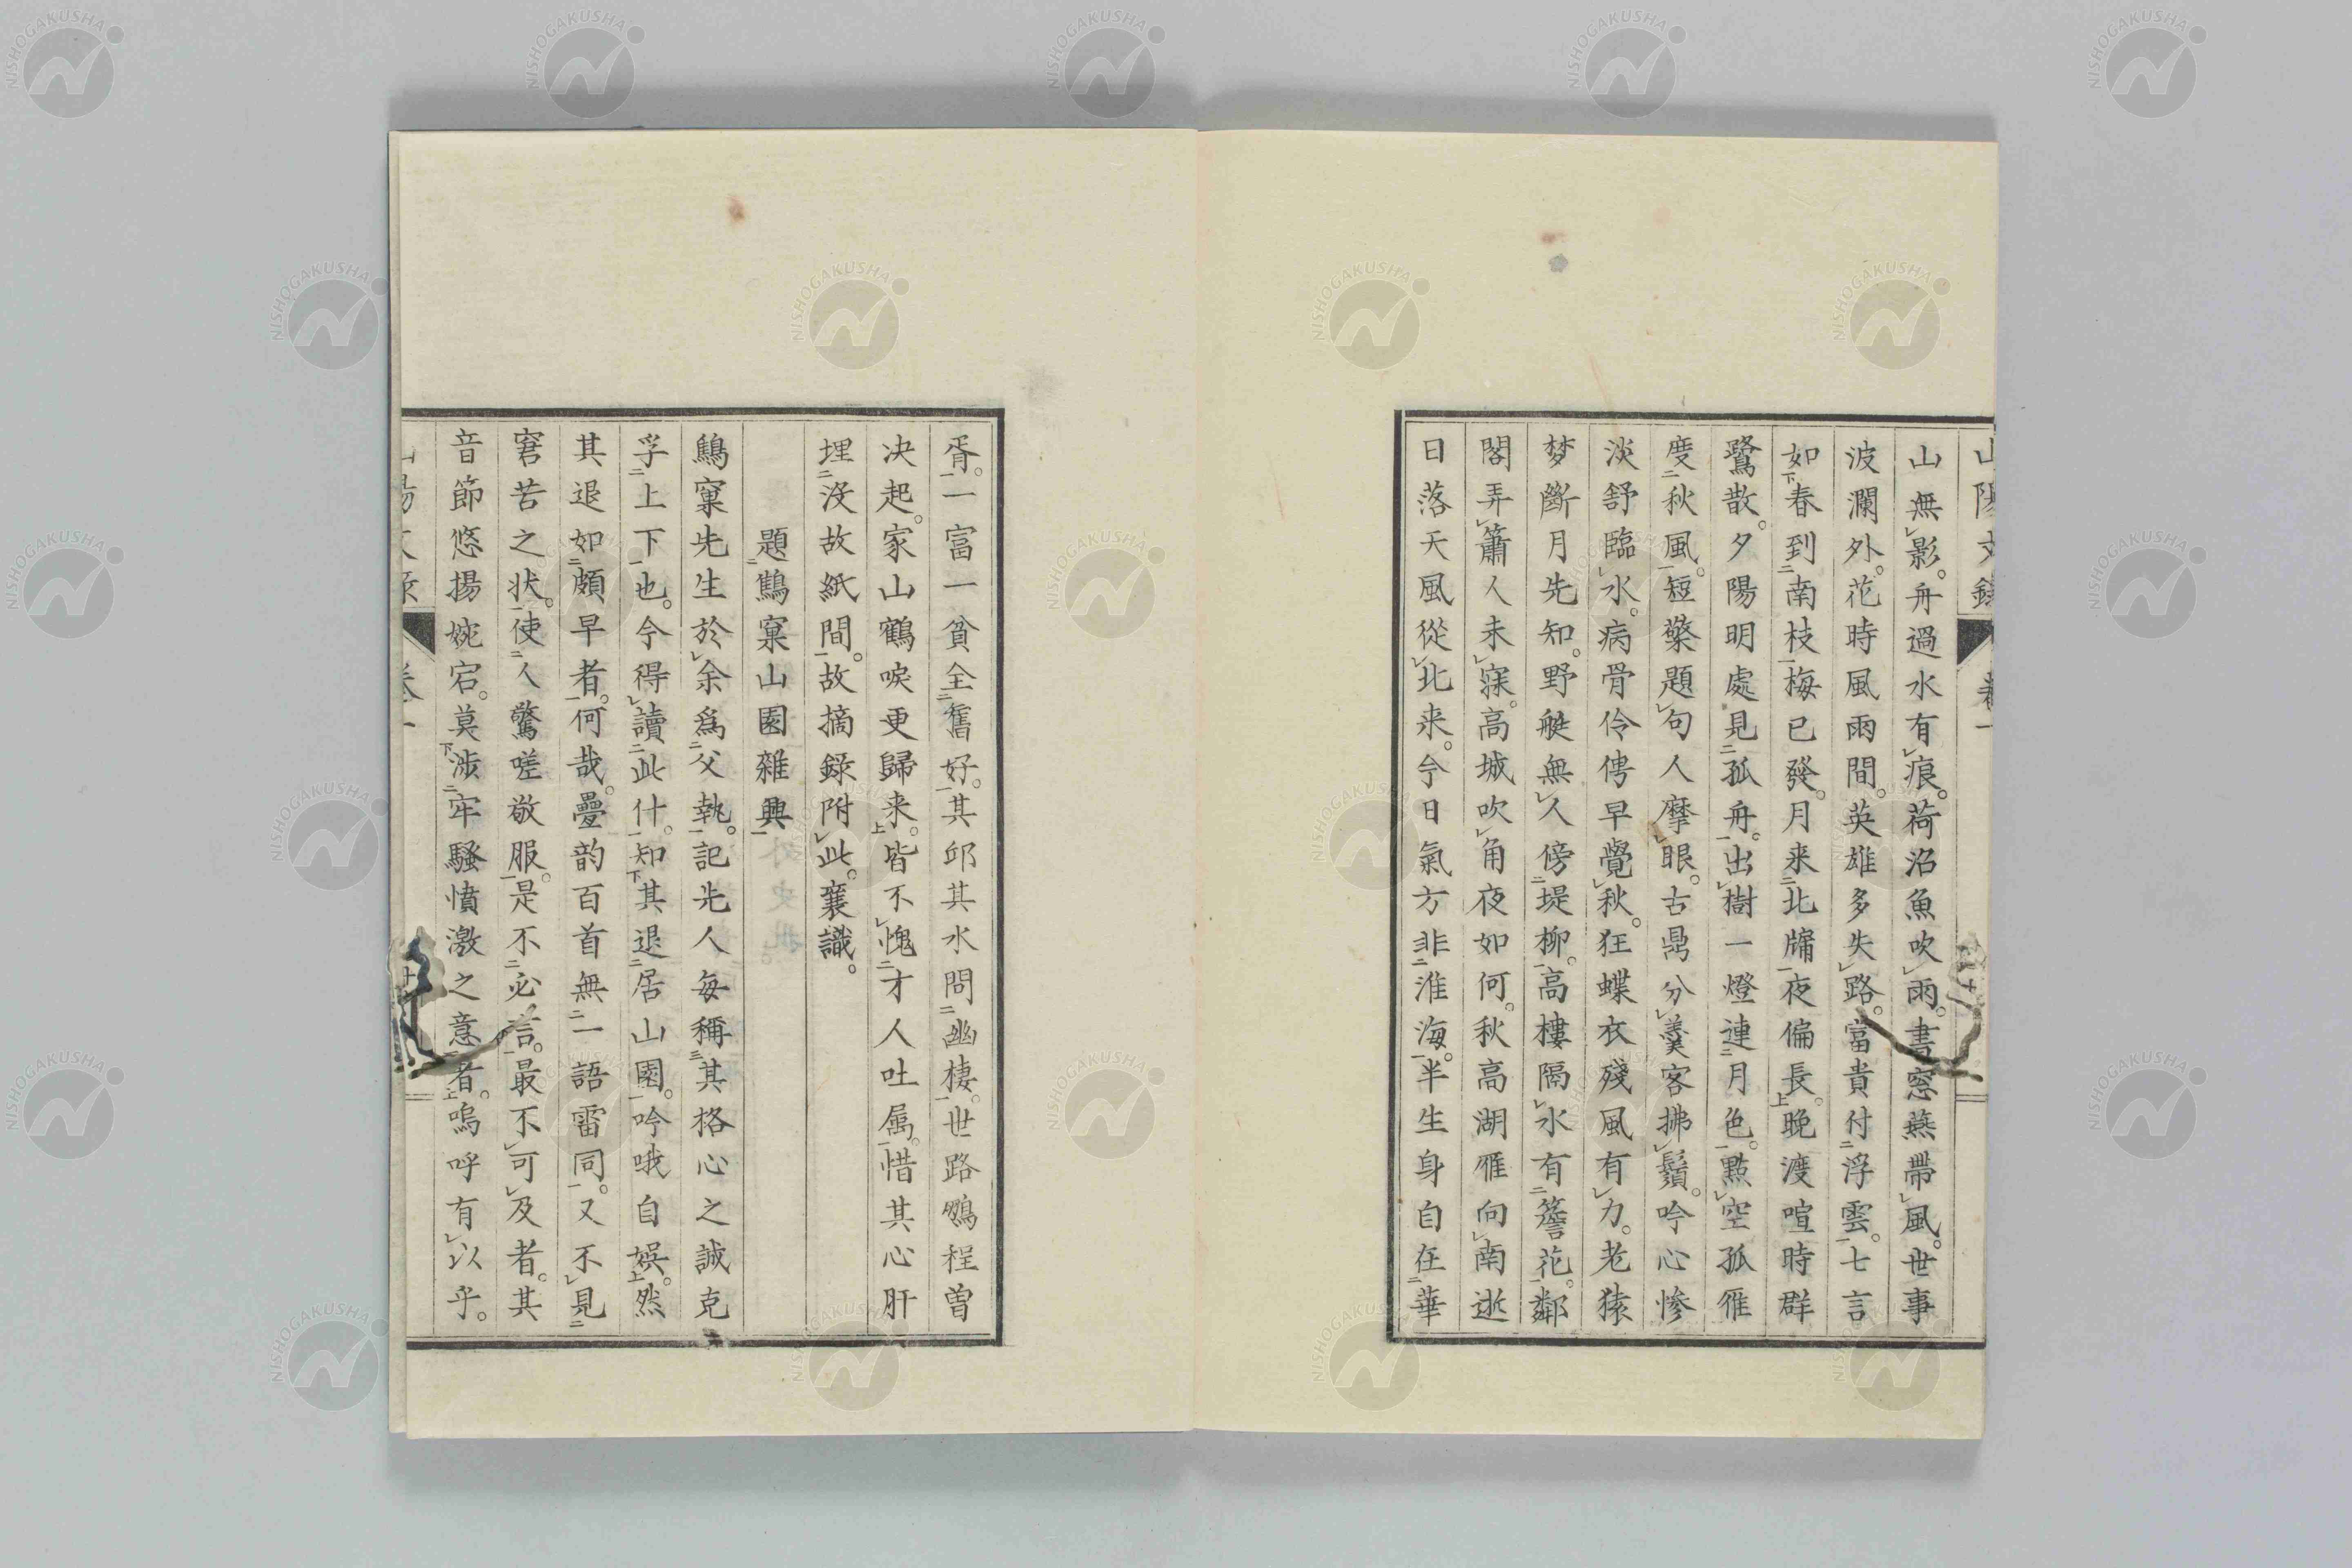 山無影。舟過水有痕。荷沼魚吹雨。書窓燕帶風。世事
波瀾外。花時風雨間。英雄多失路。富貴付浮雲。七言
如春到南枝梅已發。月来北牖夜偏長。晚渡喧時群
鷺散。夕陽明處見孤舟。出樹一燈連月色。點空孤雁
度秋風。短檠題句人摩眼。古鼎分羹客拂鬚。吟心惨
淡舒臨水。病骨伶俜早覺秋。狂蝶衣殘風有力。老猿
梦斷月先知。野艇無人傍堤柳。高樓隔水有簷花。鄰
閣弄簫人未寐。高城吹角夜如何。秋高湖雁向南逝
日落天風從北来。今日氣方非淮海。半生身自在華
胥。一富一貧全舊好。其邱其水問幽棲。世路鴉程曽
决起。家山鶴唳更歸来。皆不愧才人吐属。惜其心肝
埋沒故紙間。故摘錄附此。襄識。
題鷦窠山園雜興
鷦窠先生於余爲父執。記先人每稱其格心之誠克
孚上下也。今得讀此什。知其退居山園。吟哦自娯。然
其退如頗早者。何哉。疊韵百首無一語雷同。又不見
窘苦之状。使人驚嗟敬服。是不必言。最不可及者。其
音節悠揚婉宕。莫涉牢騷憤激之意者。嗚呼有以乎。